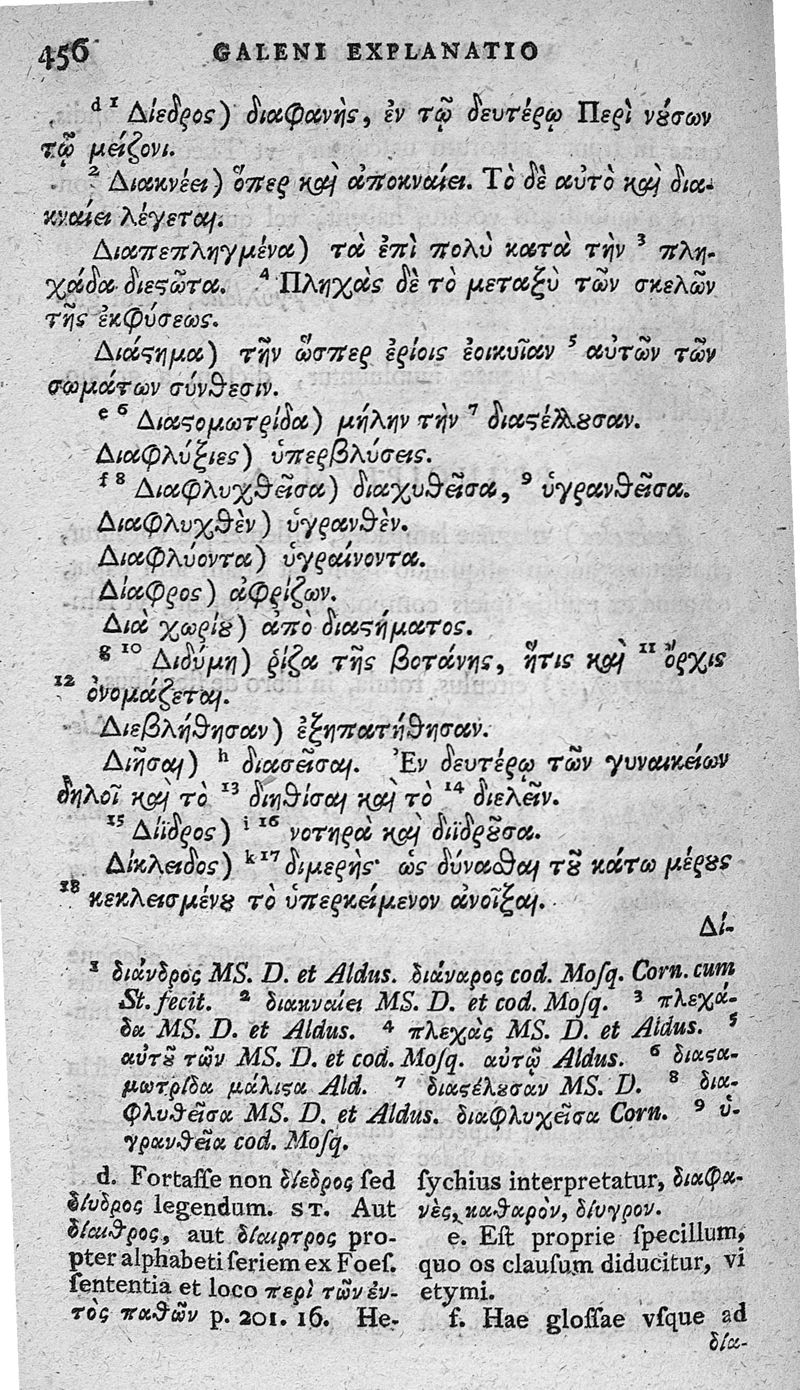 456 GALENI EXPLANATIO
d 1 Δίεδρος) διαφανὴς, ἐν τῷ δευτέρῳ Περὶ νȣ́σων
τῷ μείζονι.
2 Διακνέει) ὅπερ καὶ ἀποκναίει. Τὸ δὲ αὐτὸ καὶ δια-
κναίει λέγεται.
Διαπεπληγμένα) τὰ ἐπὶ πολὺ κατὰ τὴν 3 πλη-
χάδα διεϛῶτα. 4 Πληχὰς δὲ τὸ μεταξὺ τῶν σκελῶν
τῆς ἐκφύσεως.
Διάϛημα) τῆν ὥσπερ ἐρίοις ἐοικυῖαν 5 αὐτῶν τῶν
σωμάτων σύνθεσιν.
e 6 Διαϛομωτρίδα) μήλην τὴν 7 διαϛέλλȣσαν.
Διαφλύξιες) ὑπερβλύσεις.
f 8 Διαφλυχθεῖσα) διαχυθεῖσα, 9 ὑγρανθεῖσα.
Διαφλυχθὲν) ὑγρανθὲν.
Διαφλύοντα) ὑγραίνοντα.
Δίαφρος) ἀφρίζων.
Διὰ χωρίȣ) ἀπὸ διαϛήματος.
g 10 Διδύμη) ῥίζα τῆς βοτάνης, ἥτις καὶ 11 ὄρχις
12 ὀνομάζεται.
Διεβλήθησαν) ἐξηπατήθησαν.
Διῆσαι) h διασεῖσαι. Ἐν δευτέρῳ τῶν γυναικείων
δηλοῖ καὶ τὸ 13 διηθίσαι καὶ τὸ 14 διελεῖν.
15 Δίϊδρος) i 16 νοτηρὰ καὶ διϊδρȣ͂σα.
Δίκλειδος) k 17 διμερὴς· ὡς δύναϑαι τȣ͂ κάτω μέρȣς
18 κεκλεισμένȣ τὸ ὑπερκείμενον ἀνοῖξαι.
Δί-
1 διάνδρος MS. D. et Aldus. διάναρος cod. Moſq. Corn. cum
St. fecit. 2 διακναίει MS. D. et cod. Moſq. 3 πλεχά-
δα MS. D. et Aldus. 4 πλεχὰς MS. D. et Aldus. 5
αὐτȣ͂ τῶν MS. D. et cod. Moſq. αὐτῷ Aldus. 6 διαϛα-
μωτρίδα μάλιϛα Ald. 7 διαϛέλȣσαν MS. D. 8 δια-
φλυθεῖσα MS. D. et Aldus. διαφλυχεῖσα Corn. 9 ὑ-
γρανθεῖα cod. Moſq.
d. Fortaſſe non δίεδρος ſed
δίυδρος legendum. ST. Aut
δίαιθρος, aut δίαιρτρος pro-
pter alphabeti ſeriem ex Foeſ.
ſententia et loco περὶ τῶν ἐν-
τὸς παθῶν p. 201. 16. He-
ſychius interpretatur, διαφα-
νὲς, καθαρὸν, δίυγρον.
e. Eſt proprie ſpecillum,
quo os clauſum diducitur, vi
etymi.
f. Hae gloſſae vſque ad
δία-